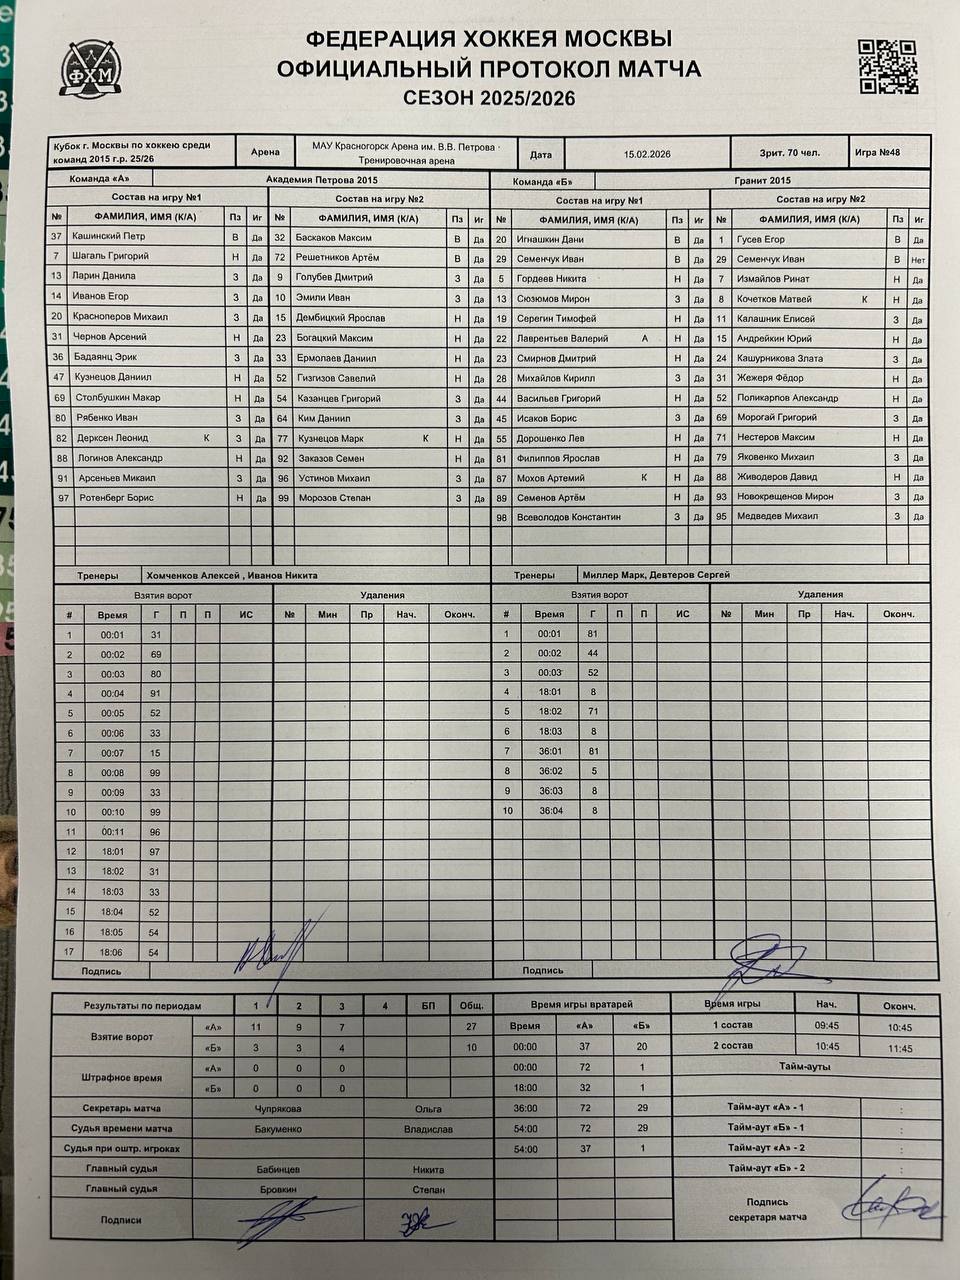 ФЕДЕРАЦИЯ ХОККЕЯ МОСКВЫ
ОФИЦИАЛЬНЫЙ ПРОТОКОЛ МАТЧА
СЕЗОН 2025/2026
ФХМ
Кубок г. Москвы по хоккею среди команд 2015 г.р. 25/26 Арена МАУ Красногорск Арена им. В.В. Петрова · Тренировочная арена Дата 15.02.2026 Зрит. 70 чел. Игра №48
Команда «А» Академия Петрова 2015 Команда «Б» Гранит 2015
Состав на игру №1 Состав на игру №2 Состав на игру №1 Состав на игру №2
№ ФАМИЛИЯ, ИМЯ (К/А) Пз Иг № ФАМИЛИЯ, ИМЯ (К/А) Пз Иг № ФАМИЛИЯ, ИМЯ (К/А) Пз Иг № ФАМИЛИЯ, ИМЯ (К/А) Пз Иг
37 Кашинский Петр В Да 32 Баскаков Максим В Да 20 Игнашкин Дани В Да 1 Гусев Егор В Да
7 Шагаль Григорий Н Да 72 Решетников Артём В Да 29 Семенчук Иван В Да 29 Семенчук Иван В Нет
13 Ларин Данила З Да 9 Голубев Дмитрий З Да 5 Гордеев Никита Н Да 7 Измайлов Ринат Н Да
14 Иванов Егор З Да 10 Эмили Иван З Да 13 Сюзюмов Мирон З Да 8 Кочетков Матвей К Н Да
20 Красноперов Михаил З Да 15 Дембицкий Ярослав Н Да 19 Серегин Тимофей Н Да 11 Калашник Елисей З Да
31 Чернов Арсений Н Да 23 Богацкий Максим Н Да 22 Лаврентьев Валерий А Н Да 15 Андрейкин Юрий Н Да
36 Бадаянц Эрик З Да 33 Ермолаев Даниил Н Да 23 Смирнов Дмитрий Н Да 24 Кашурникова Злата З Да
47 Кузнецов Даниил Н Да 52 Гизгизов Савелий Н Да 28 Михайлов Кирилл З Да 31 Жежеря Фёдор Н Да
69 Столбушкин Макар Н Да 54 Казанцев Григорий З Да 44 Васильев Григорий Н Да 52 Поликарпов Александр Н Да
80 Рябенко Иван З Да 64 Ким Даниил З Да 45 Исаков Борис З Да 69 Морогай Григорий З Да
82 Дерксен Леонид К З Да 77 Кузнецов Марк К Н Да 55 Дорошенко Лев Н Да 71 Нестеров Максим Н Да
88 Логинов Александр Н Да 92 Заказов Семен Н Да 81 Филиппов Ярослав Н Да 79 Яковенко Михаил З Да
91 Арсеньев Микаил З Да 96 Устинов Михаил З Да 87 Мохов Артемий К Н Да 88 Живодеров Давид Н Да
97 Ротенберг Борис Н Да 99 Морозов Степан З Да 89 Семенов Артём Н Да 93 Новокрещенов Мирон З Да
98 Всеволодов Константин З Да 95 Медведев Михаил З Да
Тренеры Хомченков Алексей , Иванов Никита Тренеры Миллер Марк, Девтеров Сергей
Взятия ворот Удаления Взятия ворот Удаления
# Время Г П П ИС № Мин Пр Нач. Оконч. # Время Г П П ИС № Мин Пр Нач. Оконч.
1 00:01 31 1 00:01 81
2 00:02 69 2 00:02 44
3 00:03 80 3 00:03 52
4 00:04 91 4 18:01 8
5 00:05 52 5 18:02 71
6 00:06 33 6 18:03 8
7 00:07 15 7 36:01 81
8 00:08 99 8 36:02 5
9 00:09 33 9 36:03 8
10 00:10 99 10 36:04 8
11 00:11 96
12 18:01 97
13 18:02 31
14 18:03 33
15 18:04 52
16 18:05 54
17 18:06 54
Подпись Подпись
Результаты по периодам 1 2 3 4 БП Общ. Время игры вратарей Время игры Нач. Оконч.
Взятие ворот «А» 11 9 7 27 Время «А» «Б» 1 состав 09:45 10:45
«Б» 3 3 4 10 00:00 37 20 2 состав 10:45 11:45
Штрафное время «А» 0 0 0 00:00 72 1 Тайм-ауты
«Б» 0 0 0 18:00 32 1
Секретарь матча Чупрякова Ольга 36:00 72 29 Тайм-аут «А» - 1 :
Судья времени матча Бакуменко Владислав 54:00 72 29 Тайм-аут «Б» - 1 :
Судья при оштр. игроках 54:00 37 1 Тайм-аут «А» - 2 :
Главный судья Бабинцев Никита Тайм-аут «Б» - 2 :
Главный судья Бровкин Степан
Подписи Подпись секретаря матча